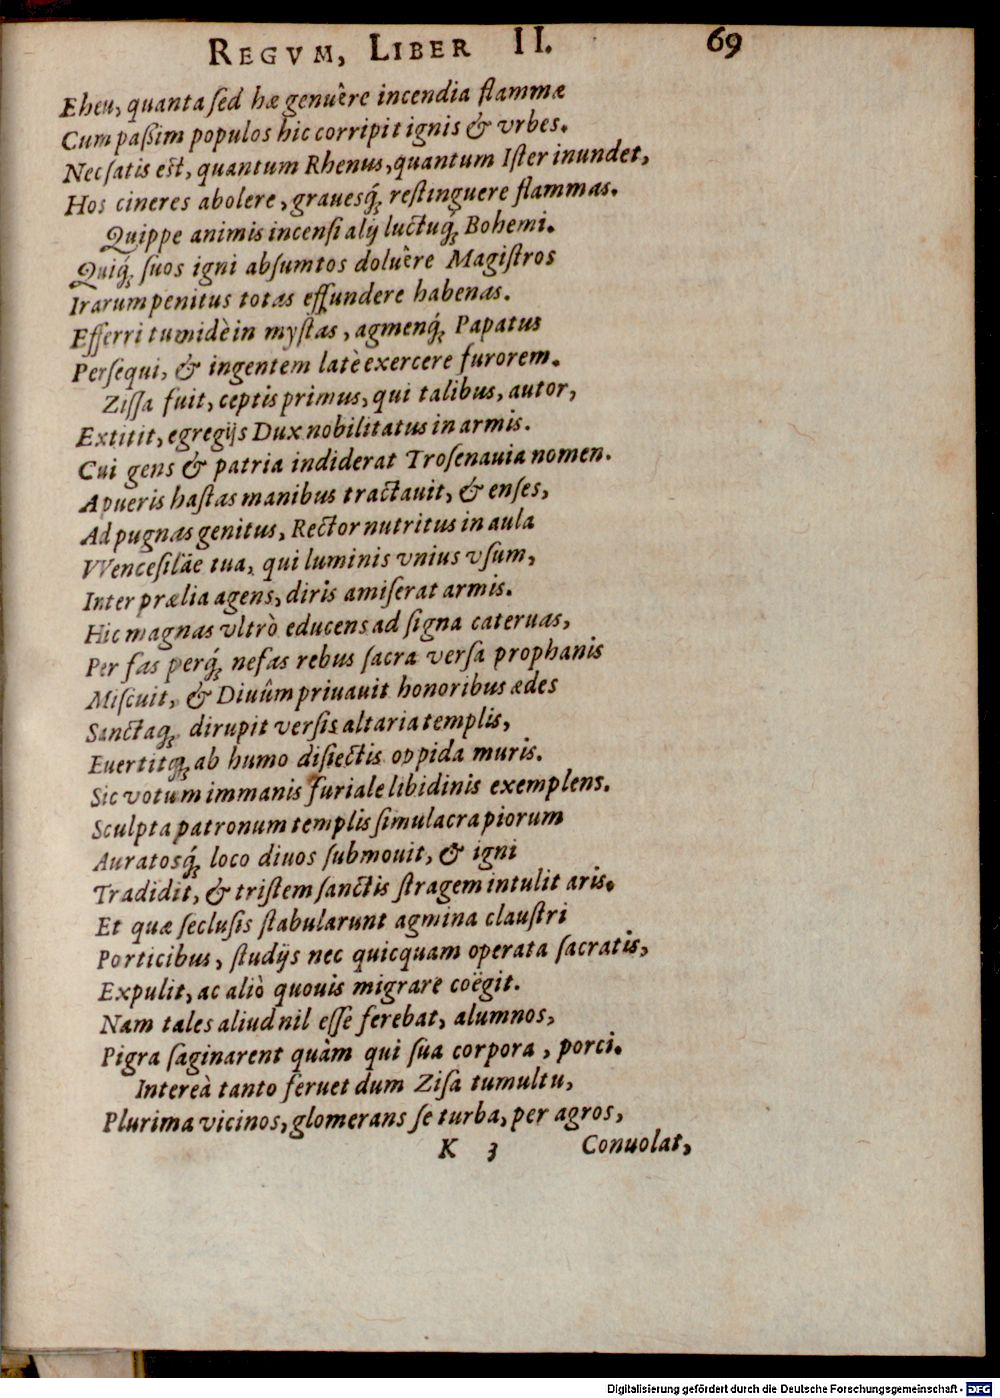 REGVM, LIBER II. 69
Eheu, quanta ſed hæ genuêre incendia flammæ
Cum paßim populos hic corripit ignis & vrbes.
Nec ſatis eſt, quantum Rhenus, quantum Iſter inundet,
Hos cineres abolere, graueſq́; reſtinguere flammas.
Quippe animis incenſi alij luctuq́; Bohemi.
Quiq́; ſuos igni abſumtos doluêre Magiſtros
Irarum penitus totas effundere habenas.
Efferri tumidè in myſtas, agmenq́; Papatus
Perſequi, & ingentem latè exercere furorem.
Ziſſa fuit, ceptis primus, qui talibus, autor,
Extitit, egregijs Dux nobilitatus in armis.
Cui gens & patria indiderat Troſenauia nomen.
A pueris haſtas manibus tractauit, & enſes,
Ad pugnas genitus, Rector nutritus in aula
VVenceſilāe tua, qui luminis vnius vſum,
Inter prælia agens, diris amiſerat armis.
Hic magnas vltrò educens ad ſigna cateruas,
Per fas perq́; nefas rebus ſacra verſa prophanis
Miſcuit, & Diuûm priuauit honoribus ædes
Sanctaq́; dirupit verſis altaria templis,
Euertitq́; ab humo diſiectis oppida muris.
Sic votum immanis furiale libidinis exemplens.
Sculpta patronum templis ſimulacra piorum
Auratosq́; loco diuos ſubmouit, & igni
Tradidit, & triſtem ſanctis ſtragem intulit aris.
Et quæ ſecluſis ſtabularunt agmina clauſtri
Porticibus, ſtudijs nec quicquam operata ſacratis,
Expulit, ac aliò quouis migrare coëgit.
Nam tales aliud nil eſſe ferebat, alumnos,
Pigra ſaginarent quàm qui ſua corpora, porci.
Intereà tanto feruet dum Ziſa tumultu,
Plurima vicinos, glomerans ſe turba, per agros,
K 3 Conuolat,
Digitalisierung gefördert durch die Deutsche Forschungsgemeinschaft - DFG